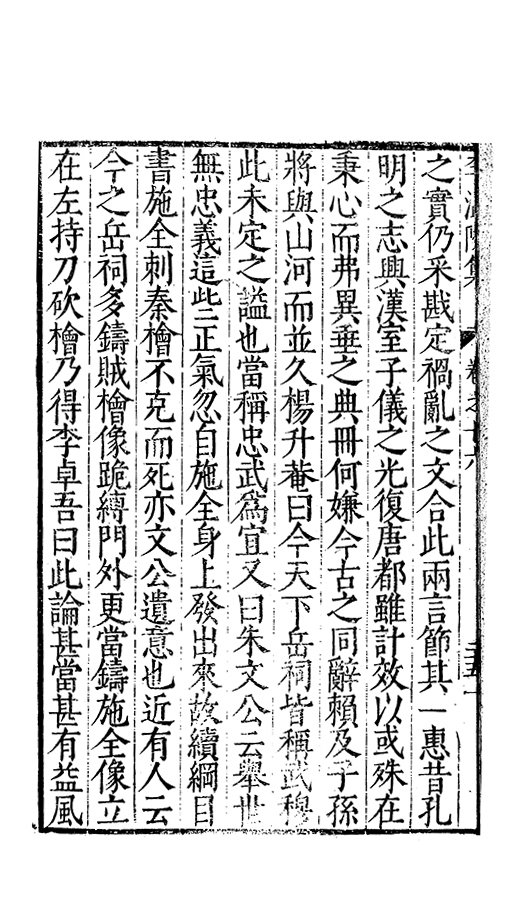 李温陵集　卷之十六
之實仍采戡定禍亂之文合此兩言節其一惠昔孔
明之志興漢室子儀之光復唐都雖計效以或殊在
秉心而弗異垂之典冊何嫌今古之同辭賴及子孫
將與山河而並久楊升菴曰今天下岳祠皆稱武穆
此未定之謚也當稱忠武爲宜又曰朱文公云舉世
無忠義這些正氣忽自施全身上發出來故續綱目
書施全刺秦檜不克而死亦文公遺意也近有人云
今之岳祠多鑄賊檜像跪縛門外更當鑄施全像立
在左持刀砍檜乃得李卓吾曰此論甚當甚有益風